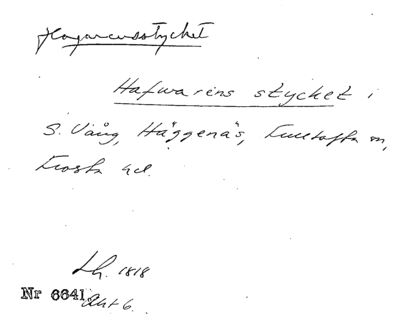 Hagarensstycket
Hafwarens stycket i
S. Vång, Häggenäs, Fulltofta sn,
Frosta hd.
Lh. 1818
Nr 6641 Akt 6.